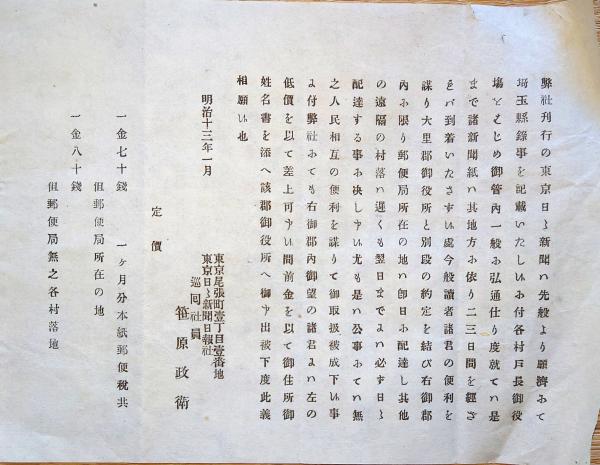 弊社刊行の東京日〻新聞ハ先般より願濟みて
埼玉縣錄事を記載いたし候ニ付各村戸長御役
塲をはじめ御管内一般ニ弘通仕り度就てハ是
まで諸新聞紙ハ其地方ニ依り二三日間を經ざ
れバ到着いたさず候處今般讀者諸君の便利を
謀り大里郡御役所と別段の約定を結び右御郡
內ニ限り郵便局所在の地ハ即日ニ配達し其他
の遠隔の村落ハ遲くも翌日までニハ必ず日〻
配達する事ニ决し候尤も是ハ公事ニてハ無
之人民相互の便利を謀りて御取扱被成下候事
ニ付弊社ニても右御郡內御望の諸君ニハ左の
低價を以て差上可申候間前金を以て御住所御
姓名書を添へ該郡御役所へ御申出被下度此義
相願候也
明治十三年一月
東京尾張町壹丁目壹番地
東京日〻新聞日報社
巡回社員
笹原政衛
定價
一金七十錢 一ヶ月分本紙郵便稅共
但郵便局所在の地
一金八十錢
但郵便局無之各村落地